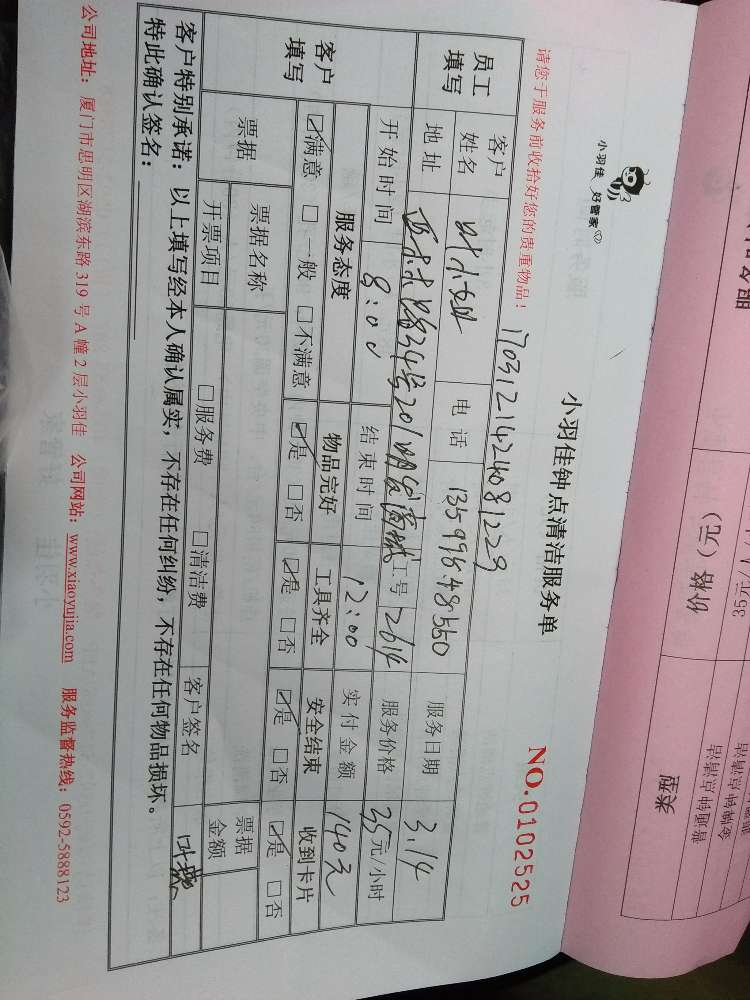 小羽佳 好管家
小羽佳钟点清洁服务单
请您于服务前收拾好您的贵重物品！
1703121424081229
NO.0102525
员工填写
客户姓名 叶小姐 电话 13599548550 服务日期 3.14
地址 34号201明发商城 工号 2614 服务价格 35元/小时
开始时间 8:00 结束时间 12:00 实付金额 140元
客户填写
服务态度 物品完好 工具齐全 安全结束 收到卡片
☑满意 □一般 □不满意 ☑是 □否 ☑是 □否 ☑是 □否 ☑是 □否
票据 票据名称 □服务费 □清洁费 票据金额
开票项目 客户签名
客户特别承诺：以上填写经本人确认属实，不存在任何纠纷，不存在任何物品损坏。
特此确认签名：
公司地址：厦门市思明区湖滨东路319号A幢2层小羽佳 公司网站：www.xiaoyujia.com 服务监督热线：0592-5888123
价格（元）
35元/
类型